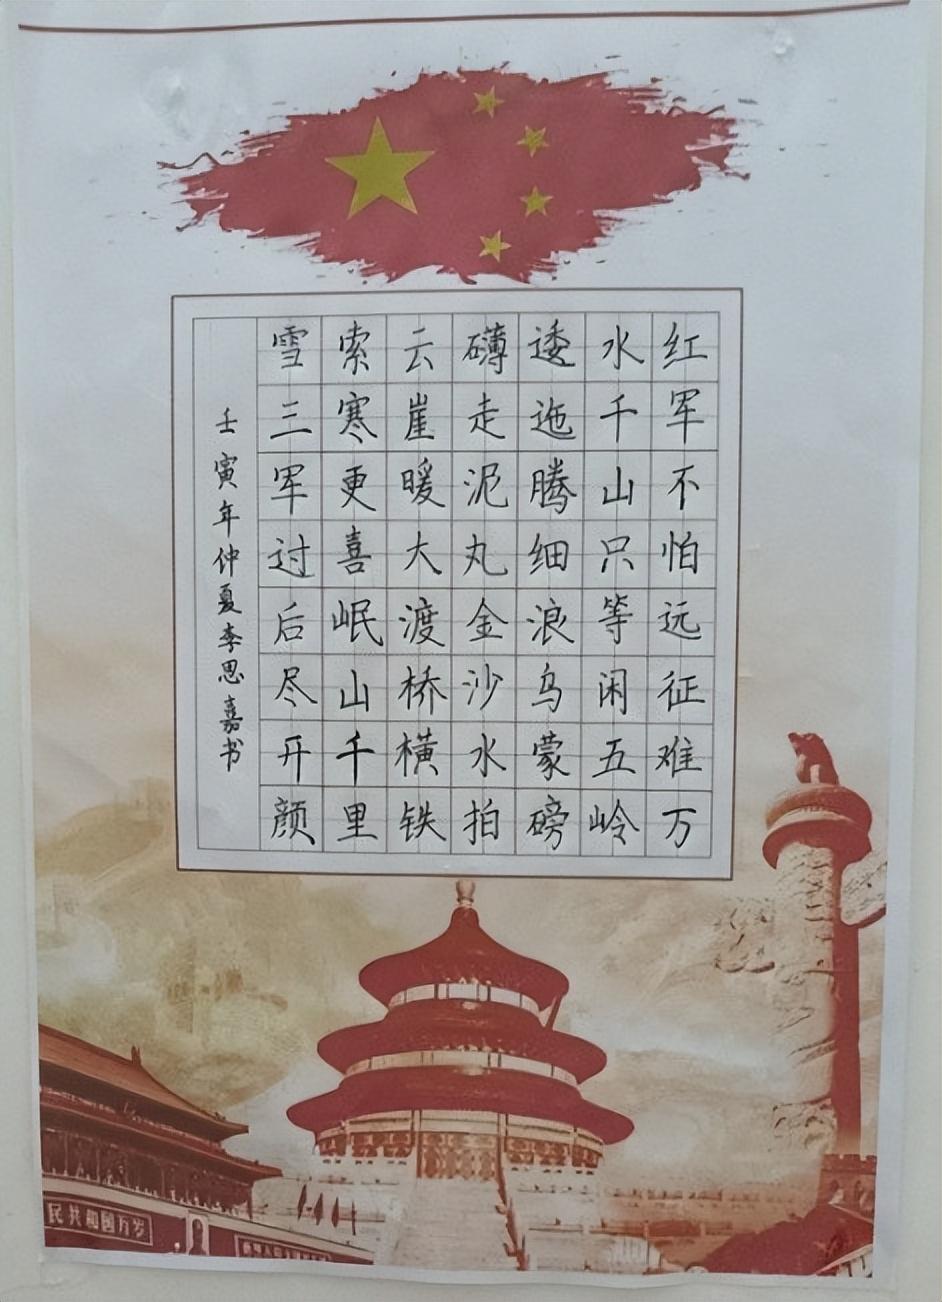 红军不怕远征难万
水千山只等闲五岭
逶迤腾细浪乌蒙磅
礴走泥丸金沙水拍
云崖暖大渡桥横铁
索寒更喜岷山千里
雪三军过后尽开颜
壬寅年仲夏李思嘉书
民共和国万岁